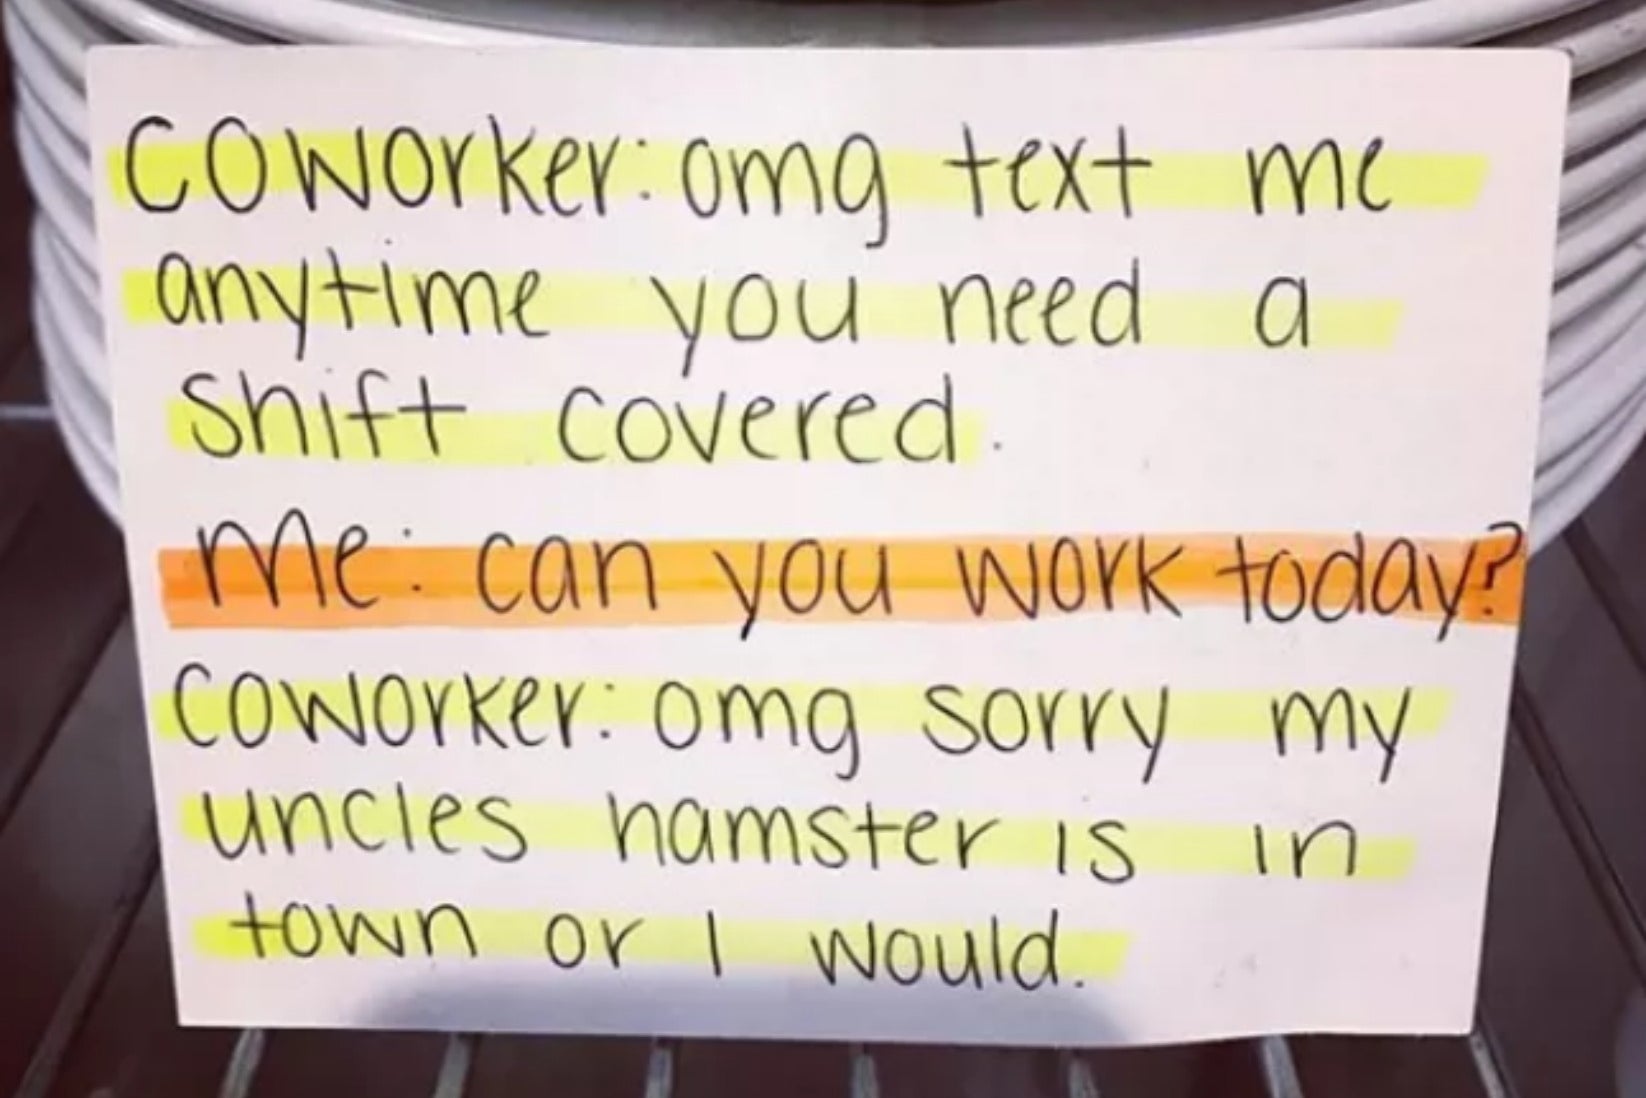 Coworker: omg text me
anytime you need a
shift covered.
Me: can you work today?
Coworker: omg sorry my
uncles hamster is in
town or I would.